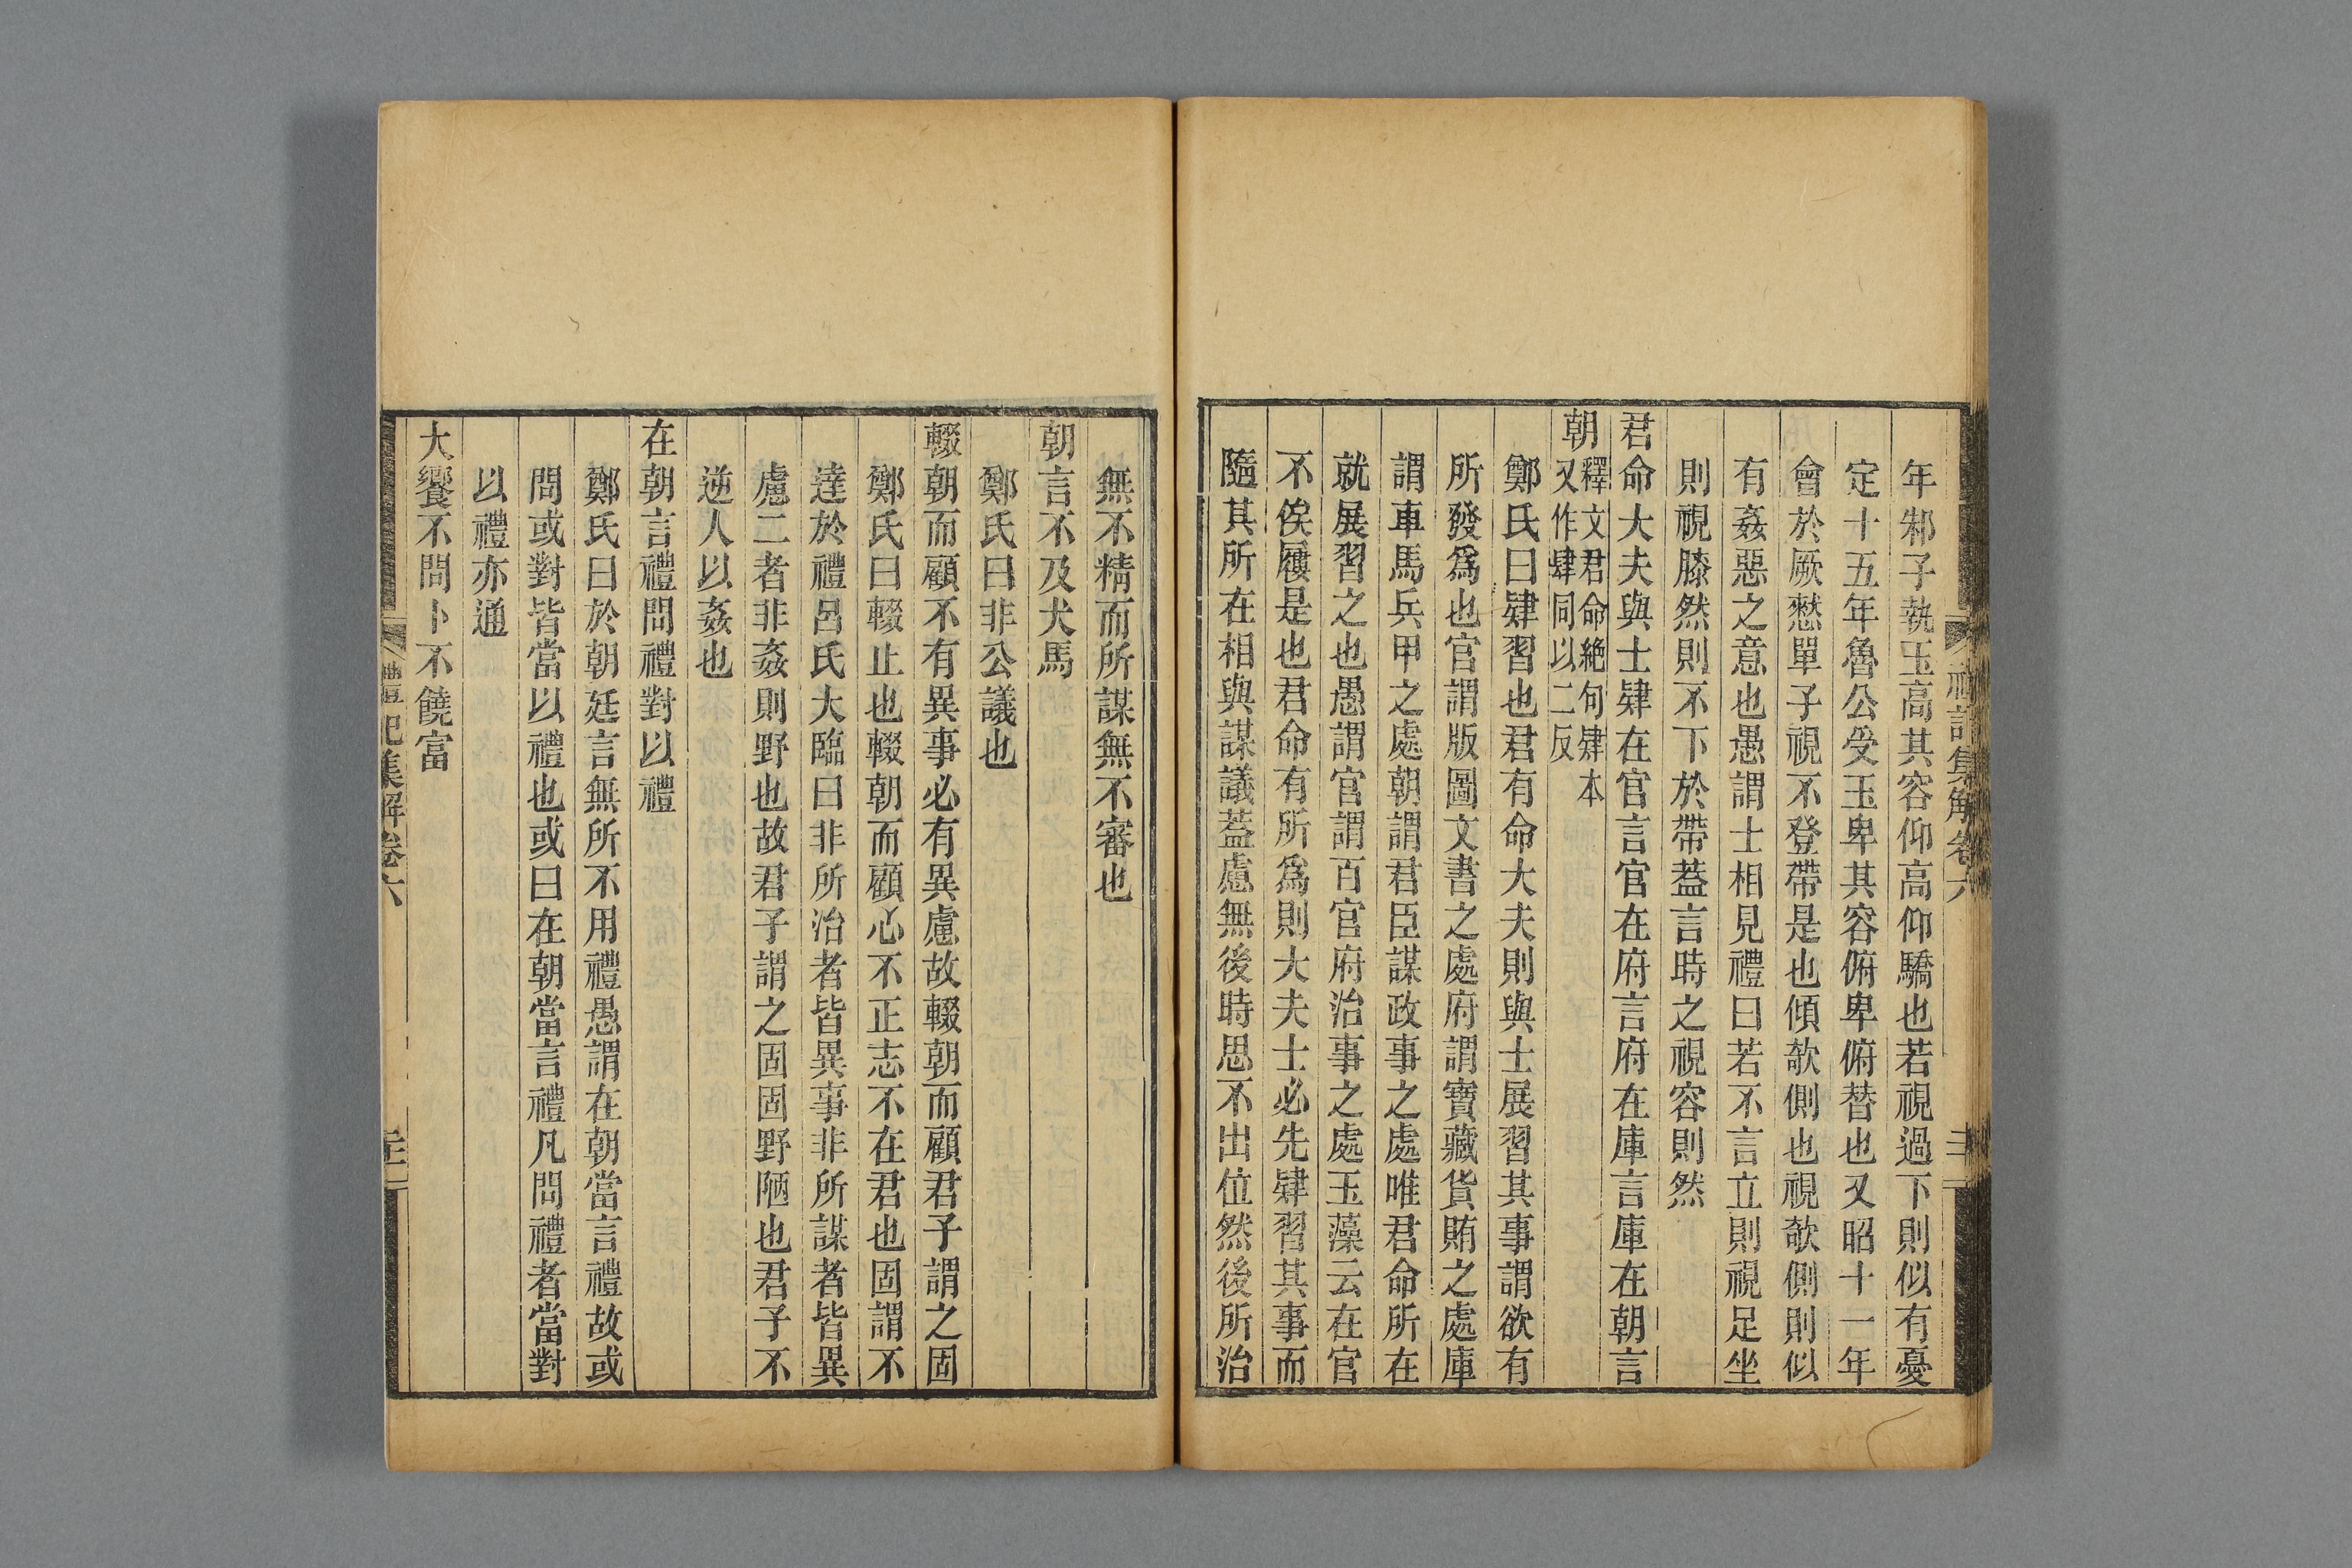 禮記集解卷六
年邾子執玉高其容仰高仰驕也若視過下則似有憂
定十五年魯公受玉卑其容俯卑俯替也又昭十一年
會於厥憖單子視不登帶是也傾欹側也視欹側則似
有姦惡之意也愚謂士相見禮曰若不言立則視足坐
則視膝然則不下於帶蓋言時之視容則然
君命大夫與士肄在官言官在府言府在庫言庫在朝言
朝釋文君命絶句肄本又作肆同以二反
鄭氏曰肄習也君有命大夫則與士展習其事謂欲有
所發爲也官謂版圖文書之處府謂寶藏貨賄之處庫
謂車馬兵甲之處朝謂君臣謀政事之處唯君命所在
就展習之也愚謂官謂百官府治事之處玉藻云在官
不俟屨是也君命有所爲則大夫士必先肄習其事而
隨其所在相與謀議蓋慮無後時思不出位然後所治
無不精而所謀無不審也
朝言不及犬馬
鄭氏曰非公議也
輟朝而顧不有異事必有異慮故輟朝而顧君子謂之固
鄭氏曰輟止也輟朝而顧心不正志不在君也固謂不
達於禮呂氏大臨曰非所治者皆異事非所謀者皆異
慮二者非姦則野也故君子謂之固固野陋也君子不
逆人以姦也
在朝言禮問禮對以禮
鄭氏曰於朝廷言無所不用禮愚謂在朝當言禮故或
問或對皆當以禮也或曰在朝當言禮凡問禮者當對
以禮亦通
大饗不問卜不饒富
禮記集解卷六